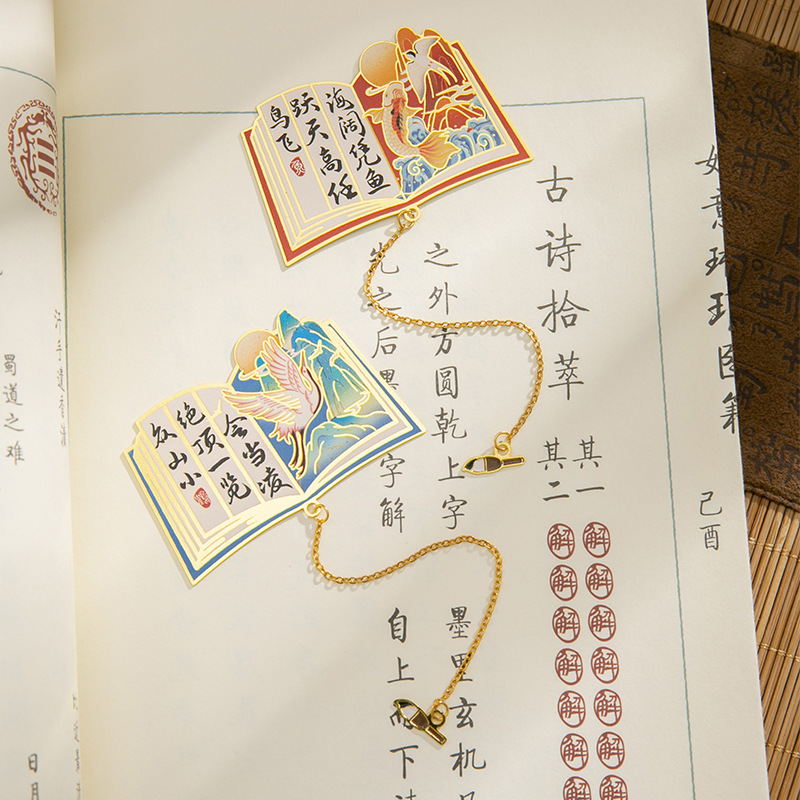 海阔凭鱼
跃天高任
鸟飞
会当凌
绝顶一览
众山小
己酉
古诗拾萃
其一
解解解解解解解
其二
解解解解解解解
之外方圆乾上字
墨里玄机
先之后
字解
自上而下
蜀道之难
日月